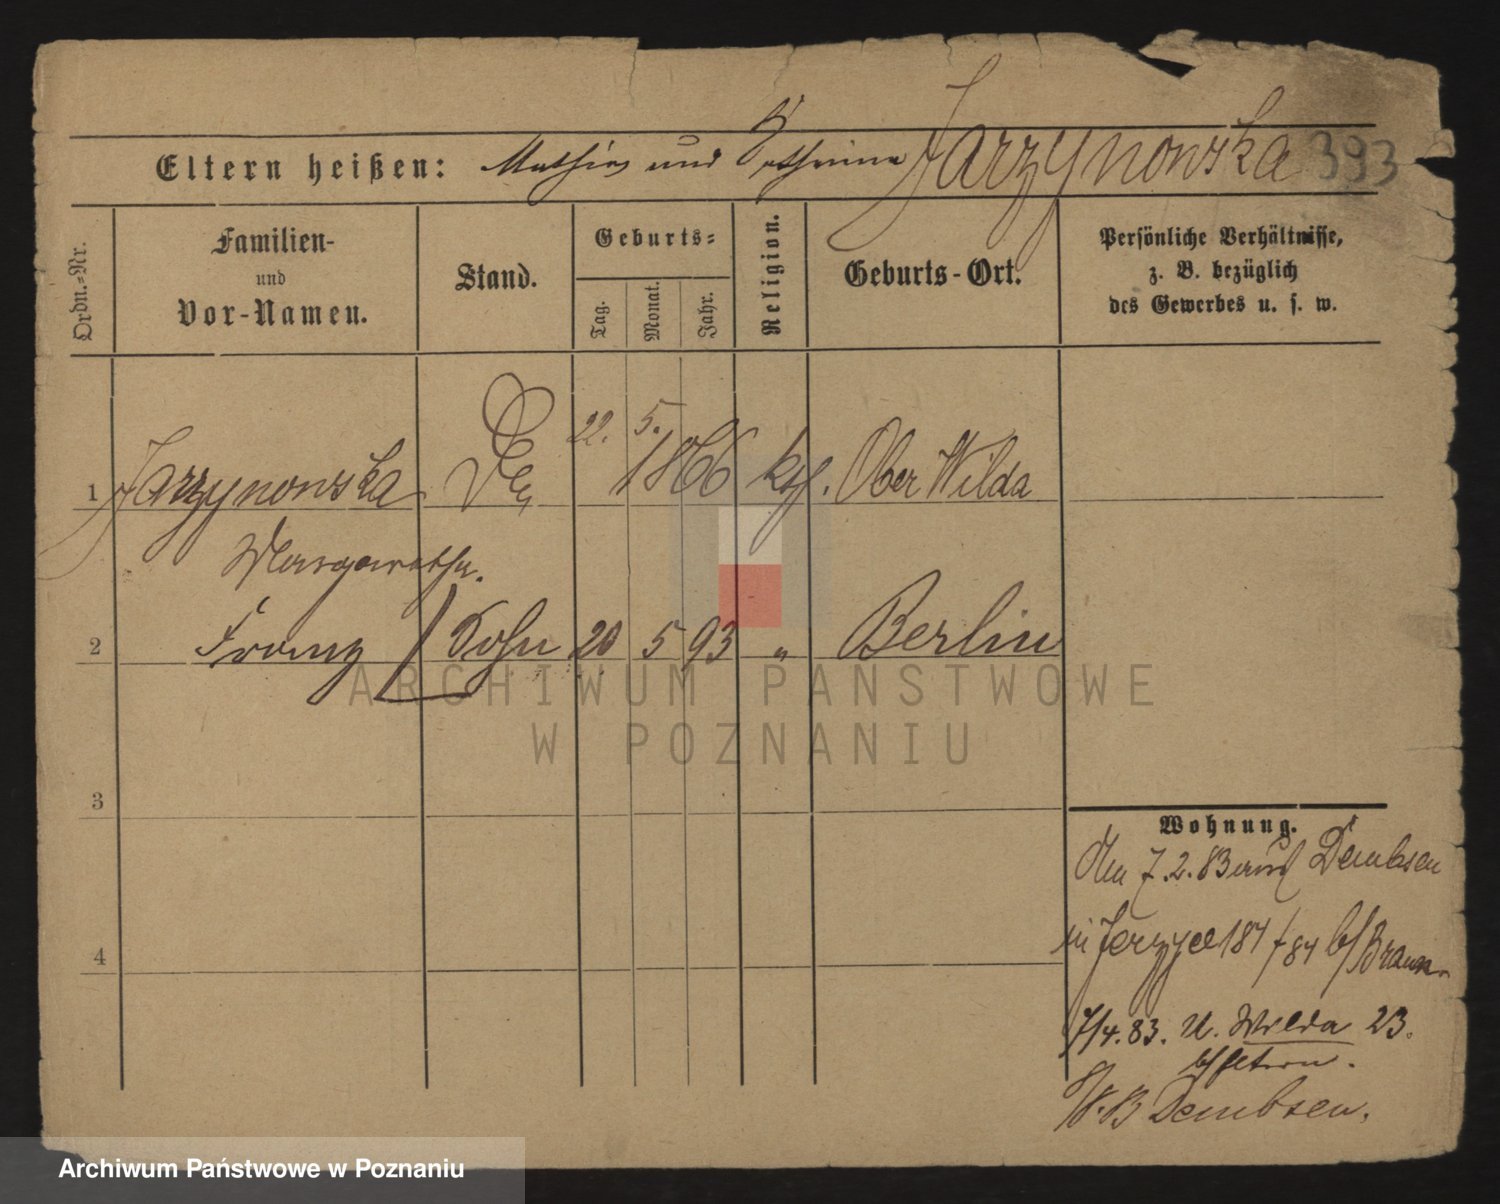 Eltern heißen: Mathias und Catharina Jarzynowska 393
Ordn.-Nr.
Familien-
und
Vor-Namen.
Stand.
Geburts-
Tag.
Monat.
Jahr.
Religion.
Geburts-Ort.
Persönliche Verhältnisse,
z. B. bezüglich
des Gewerbes u. s. w.
1 Jarzynowska 22. 5. 1866 kth. Ober Wilda
Margaretha.
2 Franz Sohn 20 5 93 " Berlin
3
4
Wohnung.
7.2.83 Dembsen
in Jerzyce 187/84 b/Braun.
7/4.83. U. Wilda 23.
b/Eltern.
W.B Dembsen.
ARCHIWUM PAŃSTWOWE
W POZNANIU
Archiwum Państwowe w Poznaniu